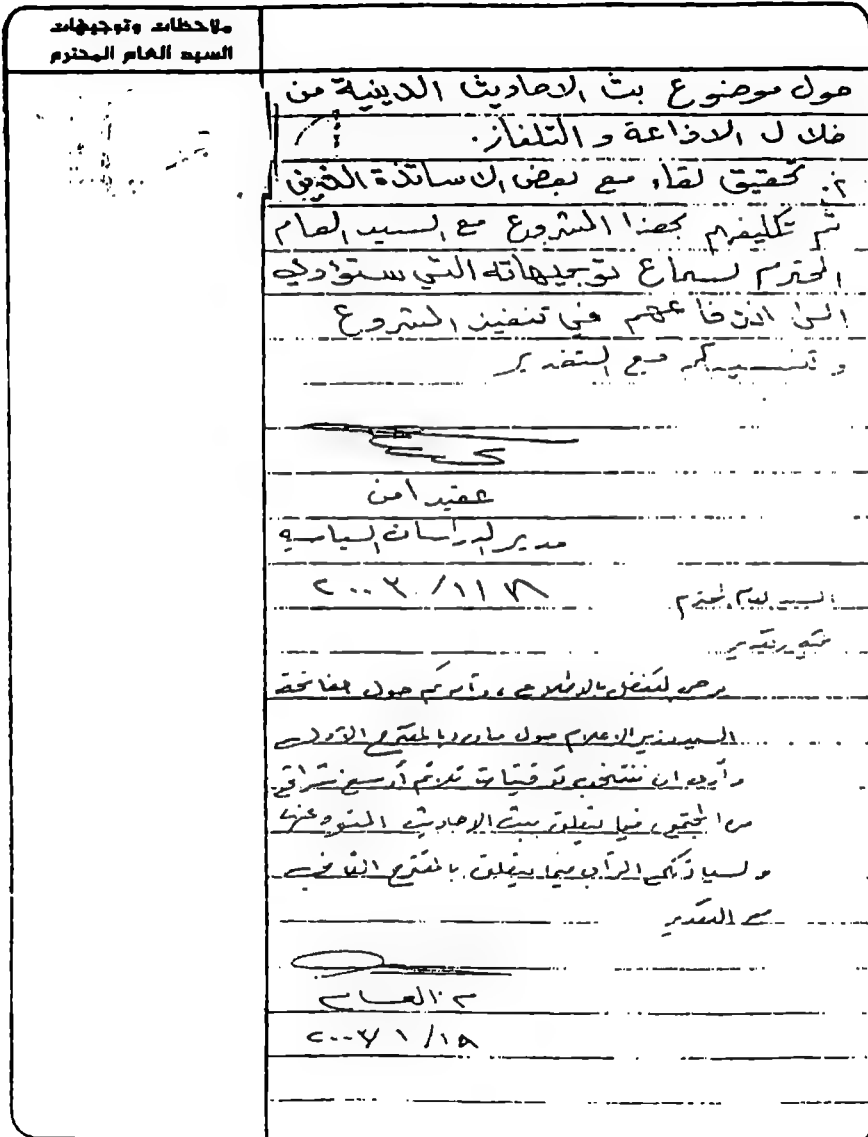 ملاحظات وتوجيهات
السيد العام المحترم
حول موضوع بث الاحاديث الدينية من
خلال الاذاعة و التلفاز.
٢. تحقيق لقاء مع بعض الاساتذة الذين
تم تكليفهم بهذا المشروع مع السيد العام
المحترم لسماع توجيهاته التي ستؤدي
الى اندفاعهم في تنفيذ المشروع
مع التقدير
عقيد امن
مدير الدراسات السياسية
السيد العام المحترم
تحية وتقدير
يرجى التفضل بالاطلاع، وأمركم حول مفاتحة
السيد وزير الاعلام حول ماورد بالمقترح الأول
وأرى ان تنتخب توقيتات تلائم أوسع شرائح
من المجتمع فيما يتعلق ببث الاحاديث المنوه عنها
ولسيادتكم الرأي فيما يتعلق بالمقترح الثاني
مع التقدير
م. العام